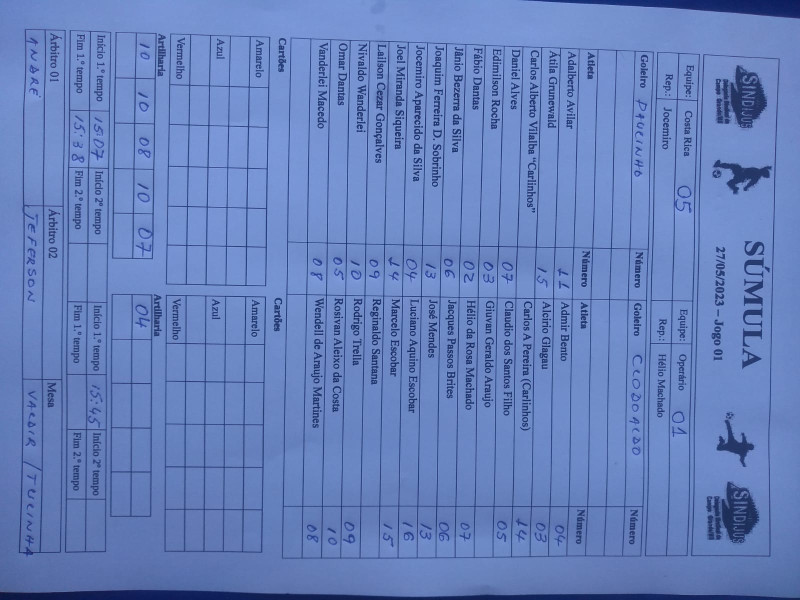 SINDIJUS
SÚMULA
27/05/2023 – Jogo 01
SINDIJUS
Equipe: Costa Rica 05 Equipe: Operário 01
Rep.: Jocemiro Rep.: Hélio Machado
Goleiro PAULINHO Número Goleiro CLODOALDO Número
Atleta Número Atleta Número
Adalberto Avilar 11 Admir Bento 04
Átila Grunewald 15 Alcirio Glagau 03
Carlos Alberto Vilalba "Carlinhos" Carlos A Pereira (Carlinhos) 14
Daniel Alves 07 Claudio dos Santos Filho 05
Edimilson Rocha 03 Giuvan Geraldo Araujo
Fábio Dantas 02 Hélio da Rosa Machado 07
Jânio Bezerra da Silva 06 Jacques Passos Brites 06
Joaquim Ferreira D. Sobrinho 13 José Mendes 13
Jocemiro Aparecido da Silva 04 Luciano Aquino Escobar 16
Joel Miranda Siqueira 14 Marcelo Escobar 15
Lailson Cezar Gonçalves 09 Reginaldo Santana
Nivaldo Wanderlei 10 Rodrigo Trella 09
Omar Dantas 05 Rosivan Aleixo da Costa 10
Vanderlei Macedo 08 Wendell de Araujo Martines 08
Cartões Cartões
Amarelo Amarelo
Azul Azul
Vermelho Vermelho
Artilharia Artilharia
10 10 08 10 07 04
Início 1.º tempo 15:07 Início 2º tempo Início 1.º tempo 15:45 Início 2º tempo
Fim 1.º tempo 15:38 Fim 2.º tempo Fim 1.º tempo Fim 2.º tempo
Árbitro 01 Árbitro 02 Mesa
ANDRÉ JEFERSON VALDIR / TUCINHA